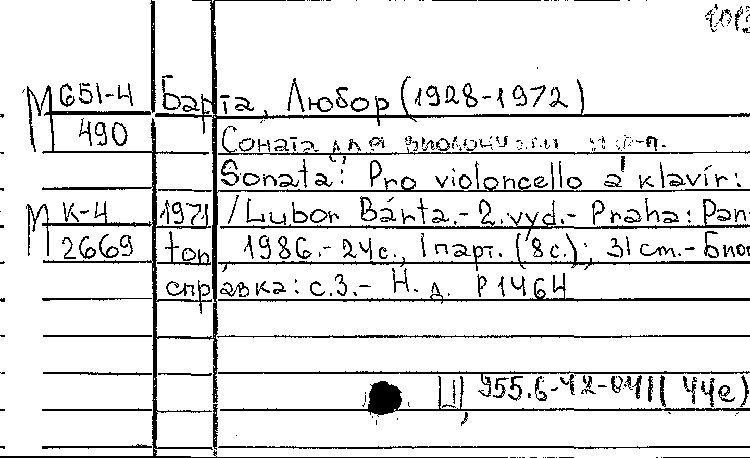 М 651-4 Барта, Любор (1928-1972)
490 Соната для виолончели и ф-п.
Sonata: Pro violoncello a klavír:
М К-4 1971 /Lubor Bárta.- 2.vyd.- Praha: Pan-
2669 ton, 1986.- 24с., 1парт. (8с.); 31cm.- Биог
справка: с.3.- Н.д. Р1464
Ц, 955.6-42-041(44е)